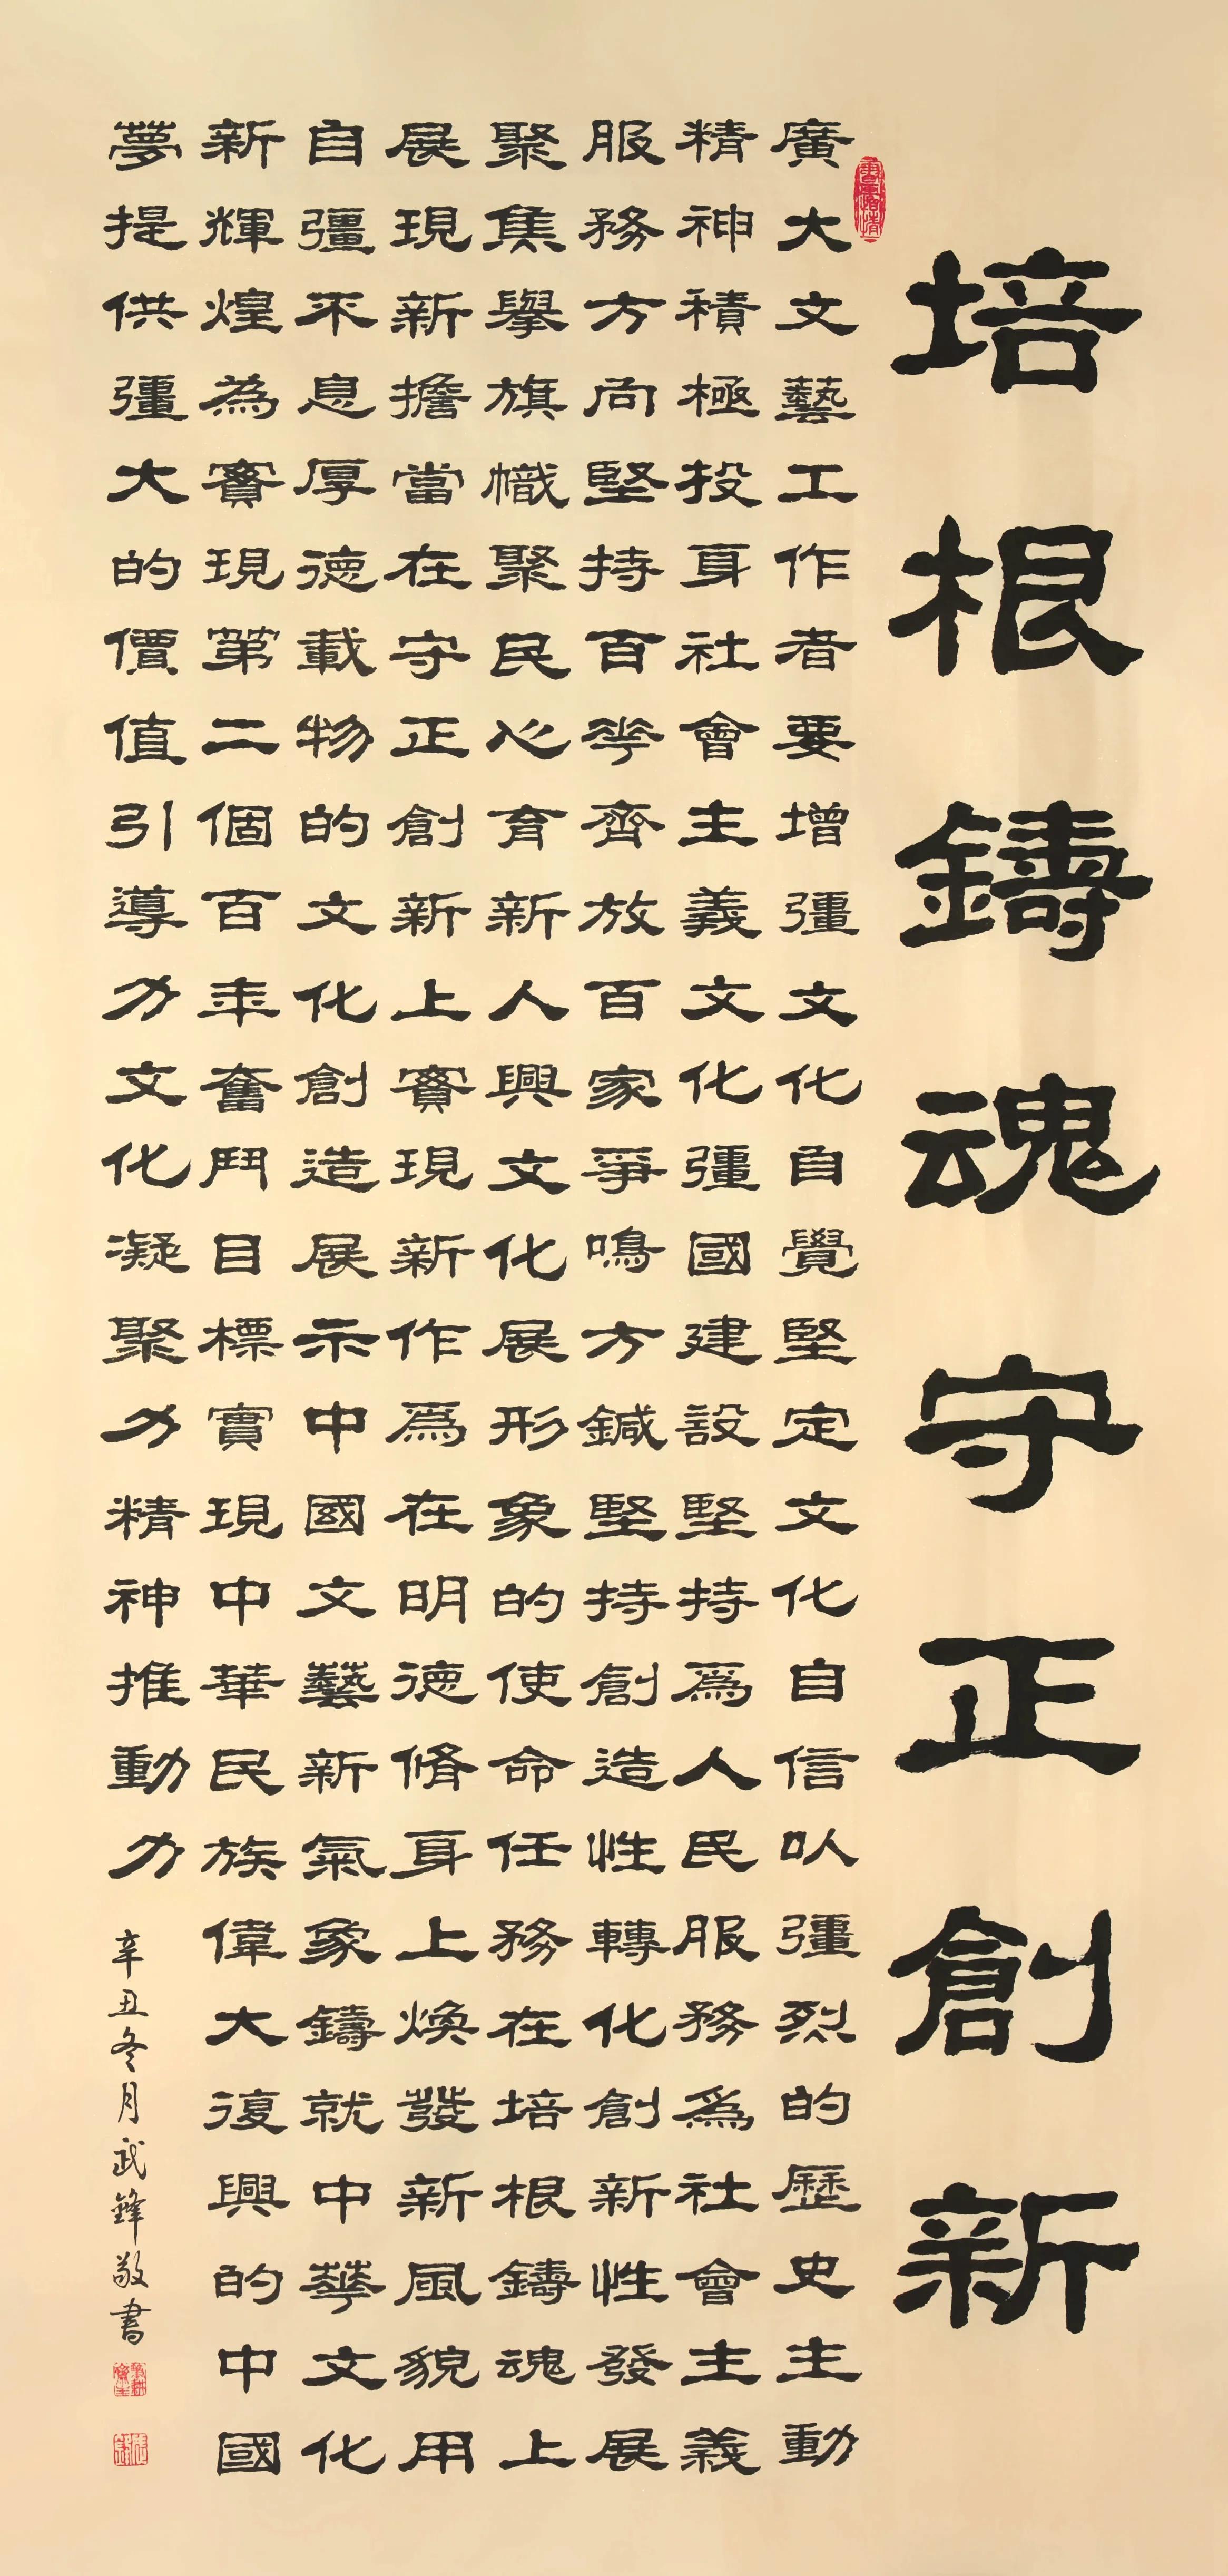 培根鑄魂守正創新
廣大文藝工作者要增彊文化自覺堅定文化自信以彊烈的歷史主動
精神積極投身社會主義文化彊國建設堅持爲人民服務爲社會主義
服務方向堅持百花齊放百家爭鳴方鍼堅持創造性轉化創新性發展
聚焦舉旗幟聚民心育新人興文化展形象的使命任務在培根鑄魂上
展現新擔當在守正創新上實現新作爲在明德脩身上煥發新風貌用
自彊不息厚德載物的文化創造展示中國文藝新氣象鑄就中華文化
新輝煌為實現第二個百年奮鬥目標實現中華民族偉大復興的中國
夢提供彊大的價值引導力文化凝聚力精神推動力
辛丑冬月武鋒敬書